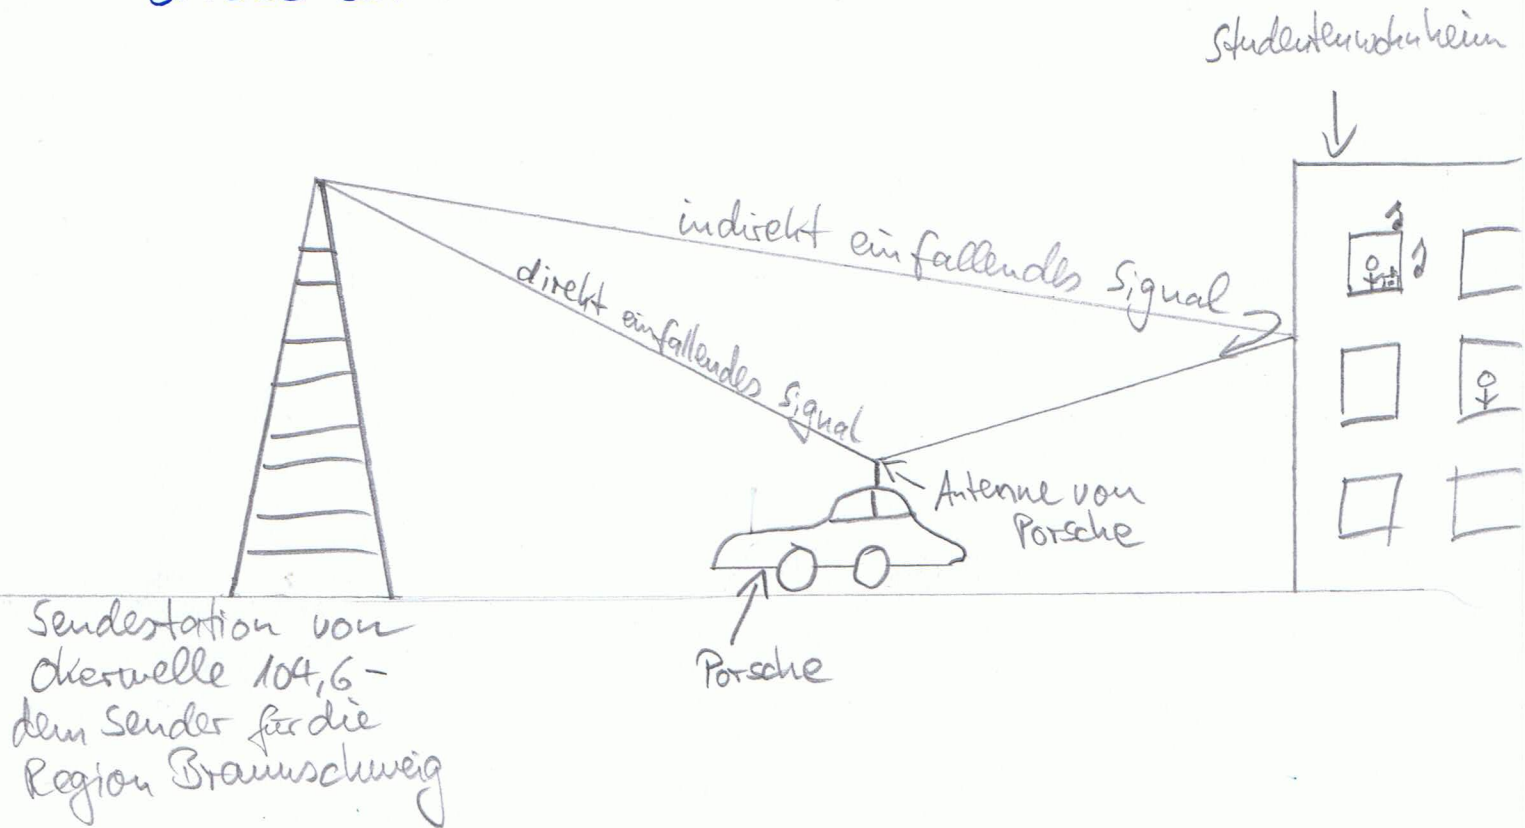 Studentenwohnheim
indirekt einfallendes Signal
direkt einfallendes Signal
Antenne von
Porsche
Porsche
Sendestation von
Okerwelle 104,6 -
dem Sender für die
Region Braunschweig